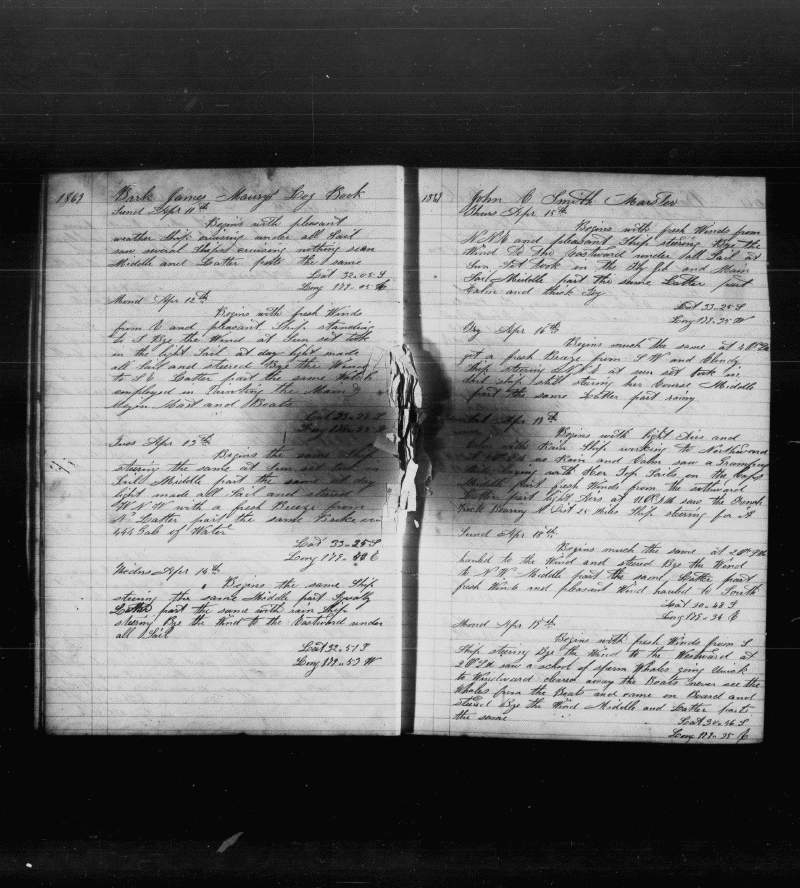 1869 Bark James Maury Log Book
Sund Apr 11th
Begins with pleasant
weather Ship cruising under all Sail
saw several Ships cruising nothing seen
Middle and Latter parts the same
Lat 32-05 S
Long 179-05 E
Mond Apr 12th
Begins with fresh Winds
from E and pleasant Ship standing
to S Bye the Wind at Sun set took
in the light Sail at day light made
all Sail and steered Bye the Wind
to S E Latter part the same Watch
employed in Painting the Main &
Mizen Mast and Boats
Lat 33-23 S
Long
Tues Apr 13th
Begins the same Ship
steering the same at Sun set took
Sail Middle part the same at day
light made all Sail and steered
W N W with a fresh Breeze from
N Latter part the same Broke out
444 Gab of Water
Lat 33-25 S
Long 179-40 E
Wedns Apr 14th
Begins the same Ship
steering the same Middle part Squally
Latter part the same with rain Ship
steering Bye the Wind to the Eastward under
all Sail
Lat 32-51 S
Long 179-53 W
1869 John C Smith Marster
Thurs Apr 15th
Begins with fresh Winds from
N N E and pleasant Ship steering Bye the
Wind to the Eastward under all Sail at
Sun Set took in the Fly Jib and Main
Sail Middle part the same Latter part
Calm and thick Fog
Lat 33-25 S
Long 179-35 W
Fry Apr 16th
Begins much the same at 4 Ock Pm
got a fresh Breeze from S W and Cloudy
Ship steering N N E at sun set took in
Sail ship still steering her Course Middle
part the same Latter part rainy
Sat Apr 17th
Begins with light Airs and
with Rain Ship working to Northward
at Ock Pm no Rain and Calm saw a
with Her Top Sails on the Caps
Middle part fresh Winds from the southward
Latter part light Airs at 11 Ock Am saw the French
Rock Bearing N Dist 25 Miles Ship steering for it
Sund Apr 18th
Begins much the same at 2 Ock Pm
hauled to the Wind and stered Bye the Wind
to N W Middle part the same Latter part
fresh Wind and pleasant Wind hauled to South
Lat 30-48 S
Long 179-34 E
Mond Apr 19th
Begins with fresh Winds from S
Ship steering Bye the Wind to the Westward at
2 Ock Pm saw a school of sparm Whales going Quick
to Windward cleared away the Boats never see the
Whales from the Boats and came on Board and
stered Bye the Wind Middle and Latter parts
the same
Lat 30-46 S
Long 179-35 E